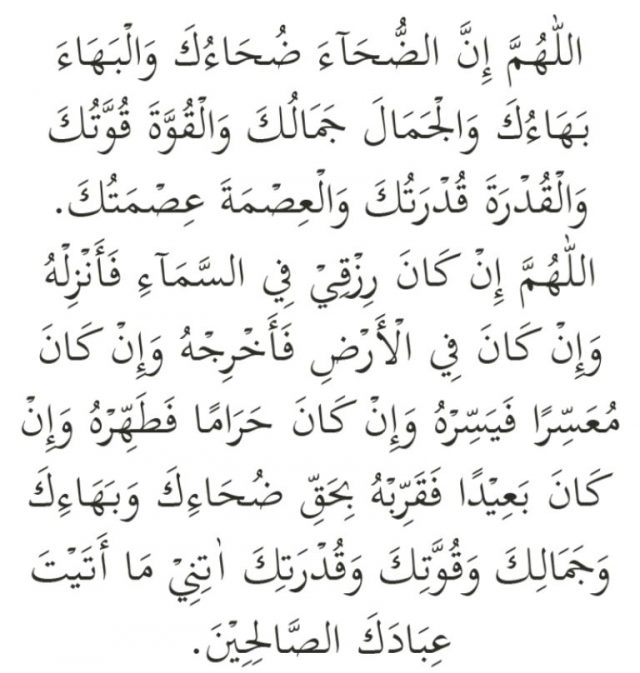 اللّٰهُمَّ إِنَّ الضُّحَآءَ ضُحَاءُكَ وَالْبَهَاءَ
بَهَاءُكَ وَالْجَمَالَ جَمَالُكَ وَالْقُوَّةَ قُوَّتُكَ
وَالْقُدْرَةَ قُدْرَتُكَ وَالْعِصْمَةَ عِصْمَتُكَ.
اللّٰهُمَّ إِنْ كَانَ رِزْقِيْ فِي السَّمَآءِ فَأَنْزِلْهُ
وَإِنْ كَانَ فِي الْأَرْضِ فَأَخْرِجْهُ وَإِنْ كَانَ
مُعَسِّرًا فَيَسِّرْهُ وَإِنْ كَانَ حَرَامًا فَطَهِّرْهُ وَإِنْ
كَانَ بَعِيْدًا فَقَرِّبْهُ بِحَقِّ ضُحَاءِكَ وَبَهَاءِكَ
وَجَمَالِكَ وَقُوَّتِكَ وَقُدْرَتِكَ اٰتِنِيْ مَا أَتَيْتَ
عِبَادَكَ الصَّالِحِيْنَ.